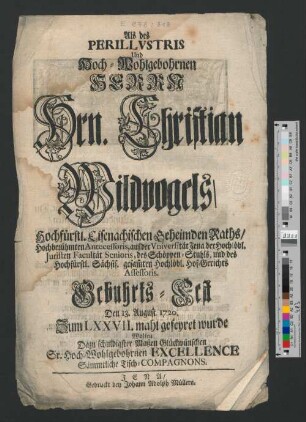 Als des
PERILLVSTRIS
Und
Hoch-Wohlgebohrnen
HERRN
Hrn. Christian
Wildvogels/
Hochfürstl. Eisenachischen Geheimden Raths/
Hochberühmten Antecessoris, auf der Vniversität Jena der Hochlöbl.
Juristen Facultät Senioris, des Schöppen-Stuhls, und des
Hochfürstl. Sächsl. gesamten Hochlöbl. Hof-Gerichts
Assessoris,
Gebuhrts-Fest
Den 13. August 1720.
Zum LXXVII. mahl gefeyret wurde
Wolten
Dazu schuldigster Massen Glückwünschen
Sr. Hoch-Wohlgebohrnen EXCELLENCE
Sämmtliche Tisch-COMPAGNONS.
JENA/
Gedruckt bey Johann Adolph Müllern.